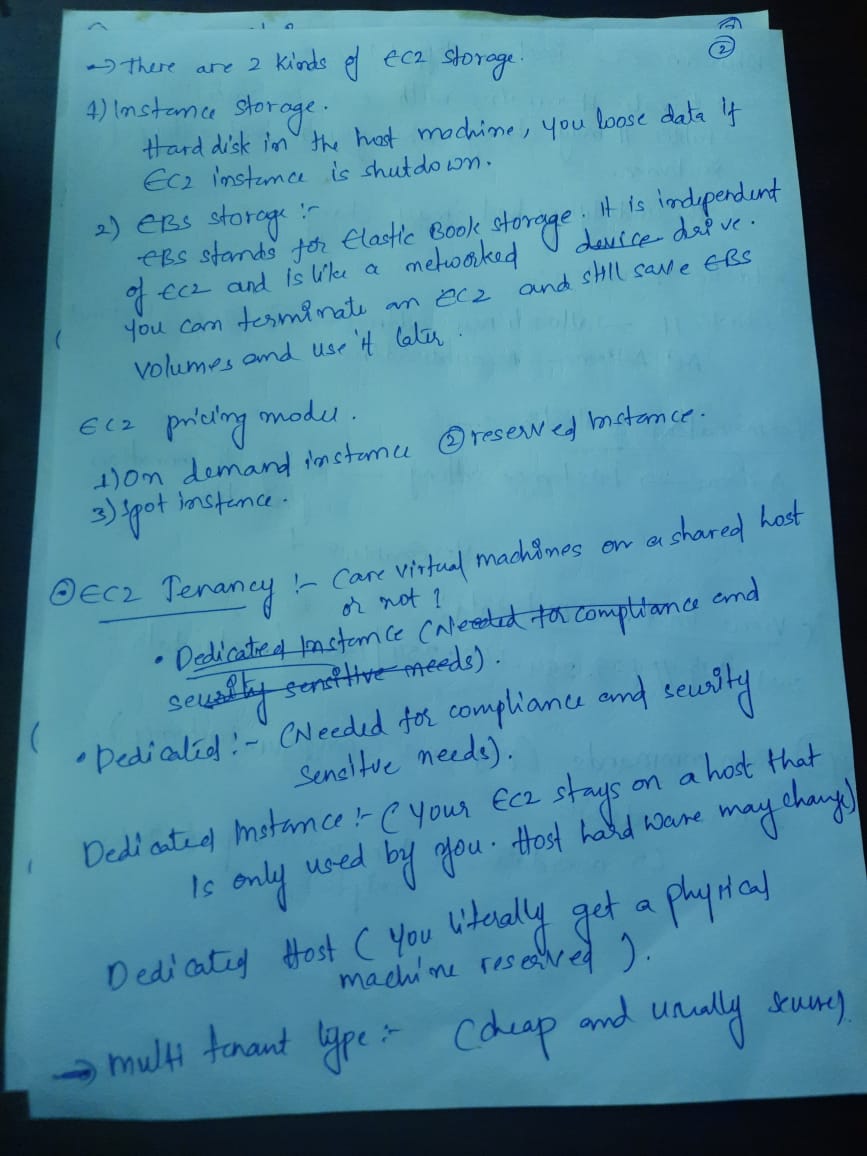 ②
→ There are 2 kinds of EC2 storage.
1) Instance storage.
Hard disk in the host machine, you loose data if
EC2 instance is shutdown.
2) EBS storage :-
EBS stands for Elastic Book storage. It is independent
of EC2 and is like a networked device drive.
You can terminate an EC2 and still save EBS
volumes and use it later.
EC2 pricing model.
1) On demand instance ② reserved Instance.
3) Spot instance.
EC2 Tenancy :- (are virtual machines on a shared host
or not ?
• Dedicated Instance (Needed for compliance and
security sensitive needs).
• Dedicated :- (Needed for compliance and seurity
Sensitve needs).
Dedicated Instance :- ( your EC2 stays on a host that
Is only used by you. Host hard ware may change)
Dedicated Host ( You literally get a physical
machine reserved ).
→ multi tenant type :- (cheap and usually secure)